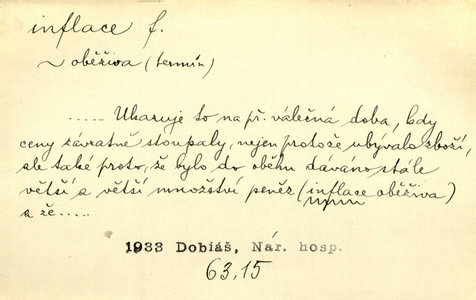 inflace f.
~ oběživa (termín)
..... Ukazuje to na př. válečná doba, kdy
ceny závratně stoupaly, nejen protože ubývalo zboží,
ale také proto, že bylo do oběhu dáváno stále
větší a větší množství peněz (inflace oběživa)
a že.....
1933 Dobiáš, Nár. hosp.
63,15